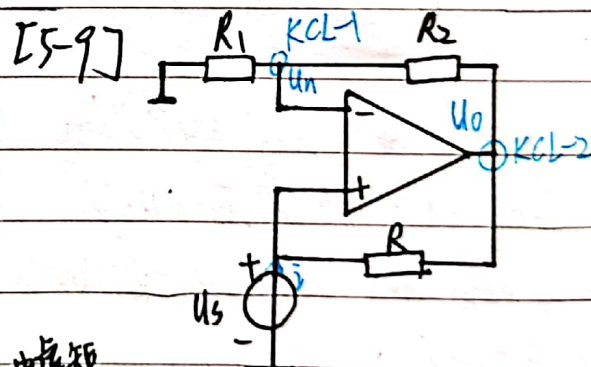 [5-9]
R1
KCL-1
R2
un
-
U0
KCL-2
+
R
+
i
us
-